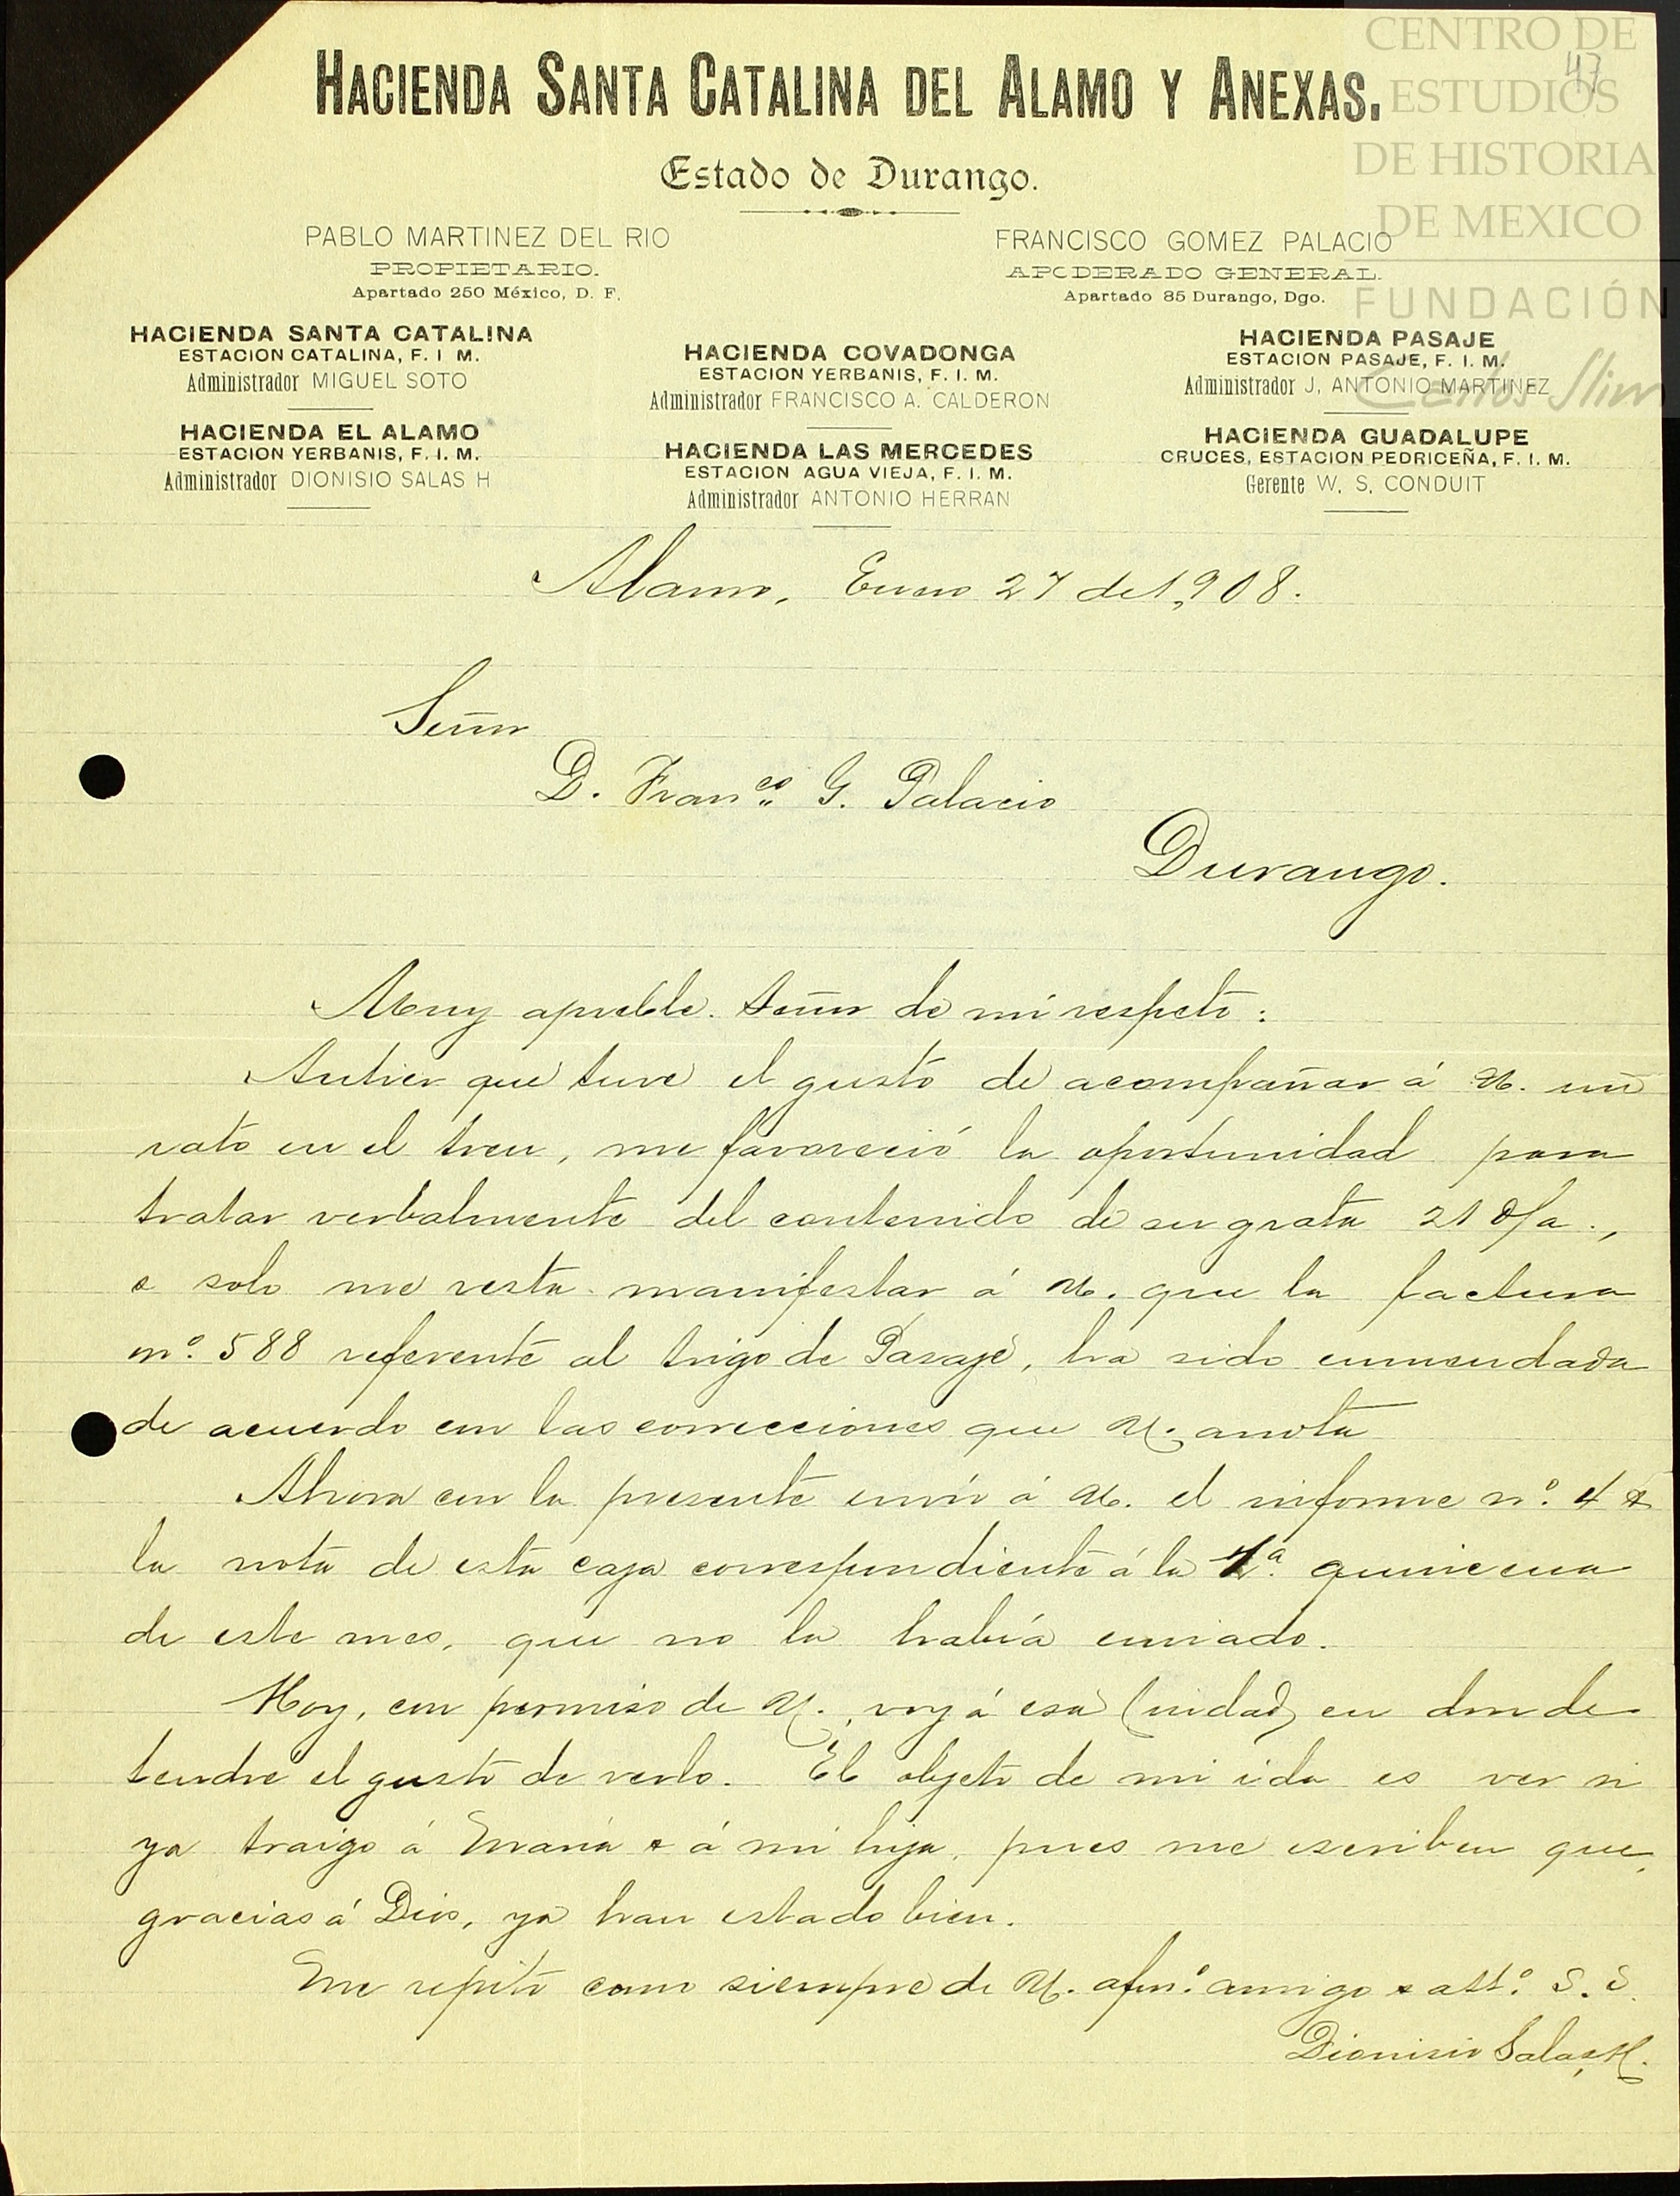 CENTRO DE
ESTUDIOS
DE HISTORIA
DE MEXICO
FUNDACIÓN
Carlos Slim
47
HACIENDA SANTA CATALINA DEL ALAMO Y ANEXAS.
Estado de Durango.
PABLO MARTINEZ DEL RIO
PROPIETARIO.
Apartado 250 México, D. F.
FRANCISCO GOMEZ PALACIO
APODERADO GENERAL.
Apartado 85 Durango, Dgo.
HACIENDA SANTA CATALINA
ESTACION CATALINA, F. I M.
Administrador MIGUEL SOTO
HACIENDA EL ALAMO
ESTACION YERBANIS, F. I. M.
Administrador DIONISIO SALAS H
HACIENDA COVADONGA
ESTACION YERBANIS, F. I. M.
Administrador FRANCISCO A. CALDERON
HACIENDA LAS MERCEDES
ESTACION AGUA VIEJA, F. I. M.
Administrador ANTONIO HERRAN
HACIENDA PASAJE
ESTACION PASAJE, F. I. M.
Administrador J, ANTONIO MARTINEZ
HACIENDA GUADALUPE
CRUCES, ESTACION PEDRICEÑA, F. I. M.
Gerente W. S. CONDUIT
Alamo, Enero 27 de 1,908.
Señor
D. Franco. G. Palacio
Durango.
Muy apreble. Señor de mi respeto:
Antier que tuve el gusto de acompañar á U. un
rato en el tren, me favoreció la oportunidad para
tratar verbalmente del contenido de su grata 21 d/a.,
& solo me resta manifestar á U. que la factura
nº. 588 referente al trigo de Pasaje, ha sido enmendada
de acuerdo con las correcciones que U. anota
Ahora con la presente envío á U. el informe nº. 4 &
la nota de esta caja correspondiente á la 1ª. quincena
de este mes, que no la había enviado.
Hoy, con permiso de U., voy á esa Ciudad en donde
tendré el gusto de verlo. El objeto de mi ida es ver si
ya traigo á María & á mi hija, pues me escriben que,
gracias á Dios, ya han estado bien.
Me repito como siempre de U. afmº. amigo & attº. S. S.
Dionisio Salas H.